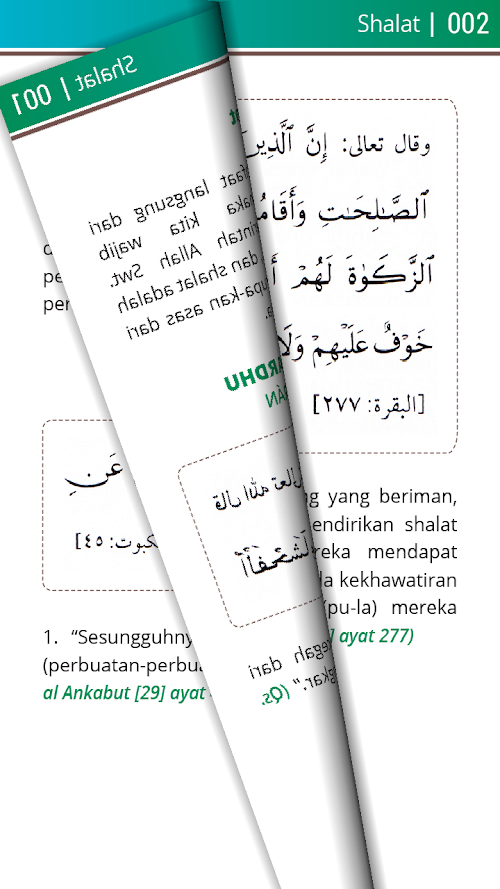 Shalat | 002
Shalat | 001
وقال تعالى: إِنَّ ٱلَّذِينَ
ٱلصَّـٰلِحَـٰتِ وَأَقَامُ
ٱلزَّكَوٰةَ لَهُمْ أَ
خَوْفٌ عَلَيْهِمْ وَلَا
[البقرة: ٢٧٧]
g yang beriman,
endirikan shalat
reka mendapat
la kekhawatiran
(pu-la) mereka
] ayat 277)
pe
per
عَنِ
كبوت: ٤٥]
1. “Sesungguhny
(perbuatan-perbu
al Ankabut [29] ayat
faat langsung dari
aka kita wajib
rintah Allah Swt.
dan shalat adalah
upa-kan asas dari
a.
ARDHU
قال الله تعالى
egah dari
gkar.” (Qs.